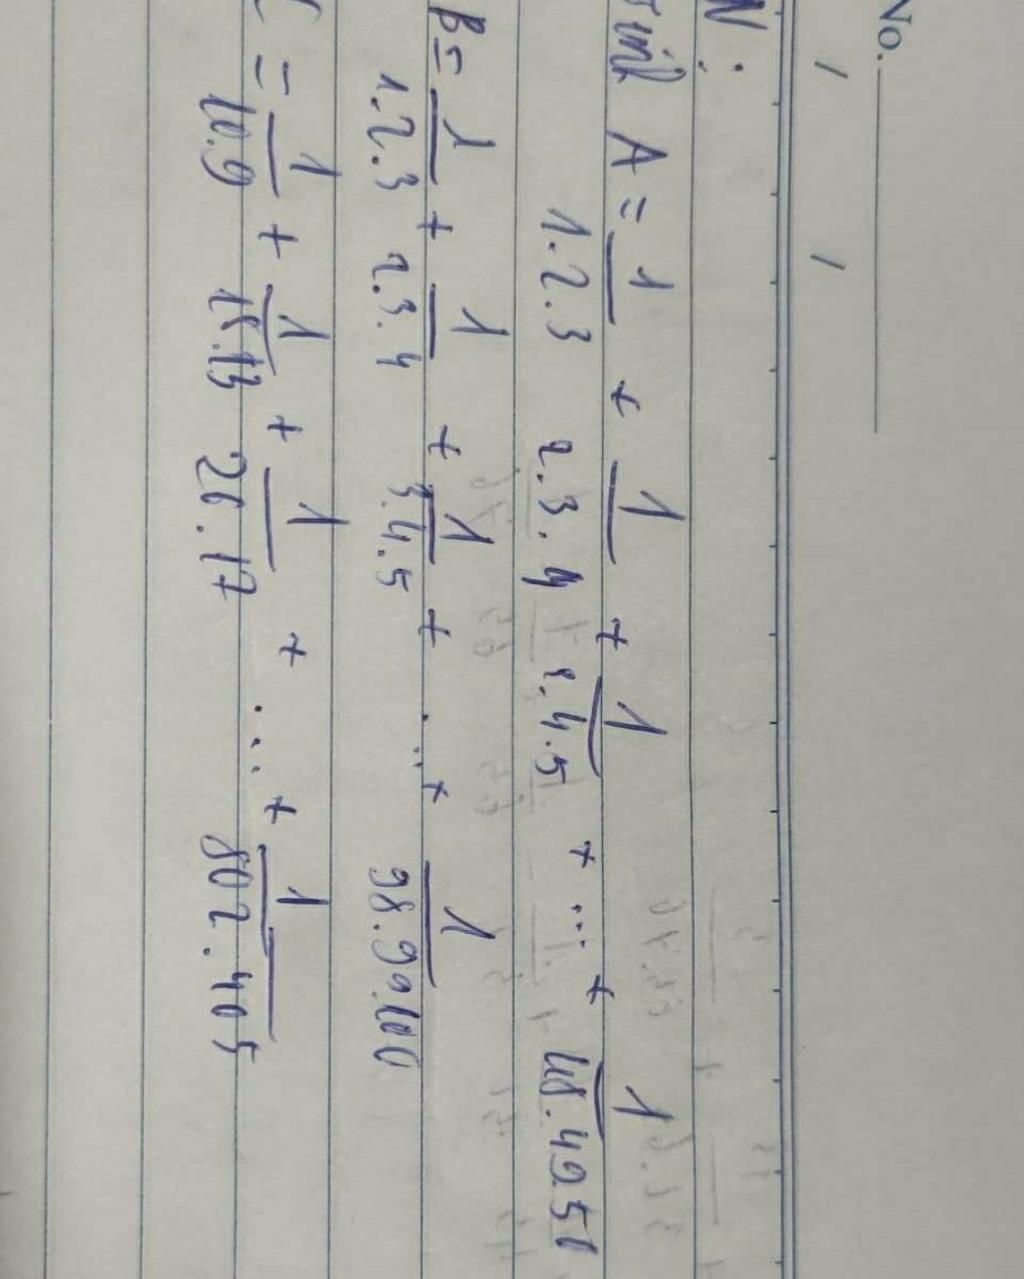 No.
N:
Tính A = 1/1.2.3 + 1/2.3.4 + 1/2.4.5 + ... + 1/48.49.50
B = 1/1.2.3 + 1/2.3.4 + 1/3.4.5 + ... + 1/98.99.100
C = 1/10.9 + 1/18.13 + 1/26.17 + ... + 1/802.405